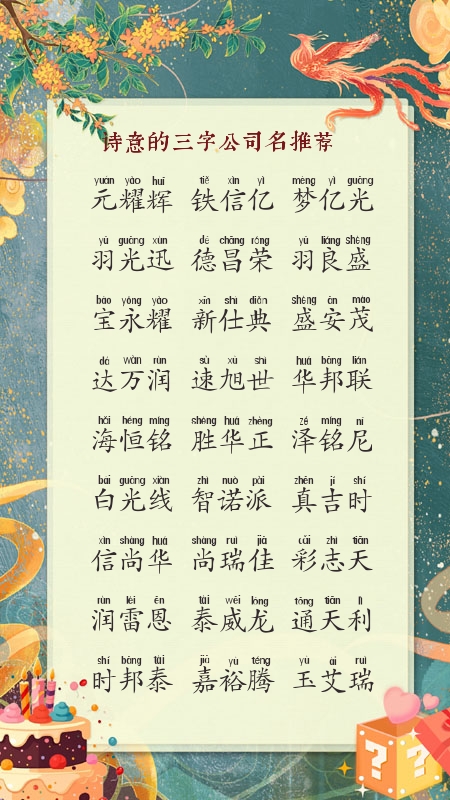 诗意的三字公司名推荐
yuán yào huī tiě xìn yì mèng yì guāng
元耀辉 铁信亿 梦亿光
yǔ guāng xùn dé chāng róng yǔ liáng shèng
羽光迅 德昌荣 羽良盛
bǎo yǒng yào xīn shì diǎn shèng ān mào
宝永耀 新仕典 盛安茂
dá wàn rùn sù xù shì huá bāng lián
达万润 速旭世 华邦联
hǎi héng míng shèng huá zhèng zé míng ní
海恒铭 胜华正 泽铭尼
bái guāng xiàn zhì nuò pài zhēn jí shí
白光线 智诺派 真吉时
xìn shàng huá shàng ruì jiā cǎi zhì tiān
信尚华 尚瑞佳 彩志天
rùn léi ēn tài wēi lóng tōng tiān lì
润雷恩 泰威龙 通天利
shí bāng tài jiā yù téng yù ài ruì
时邦泰 嘉裕腾 玉艾瑞
? ?